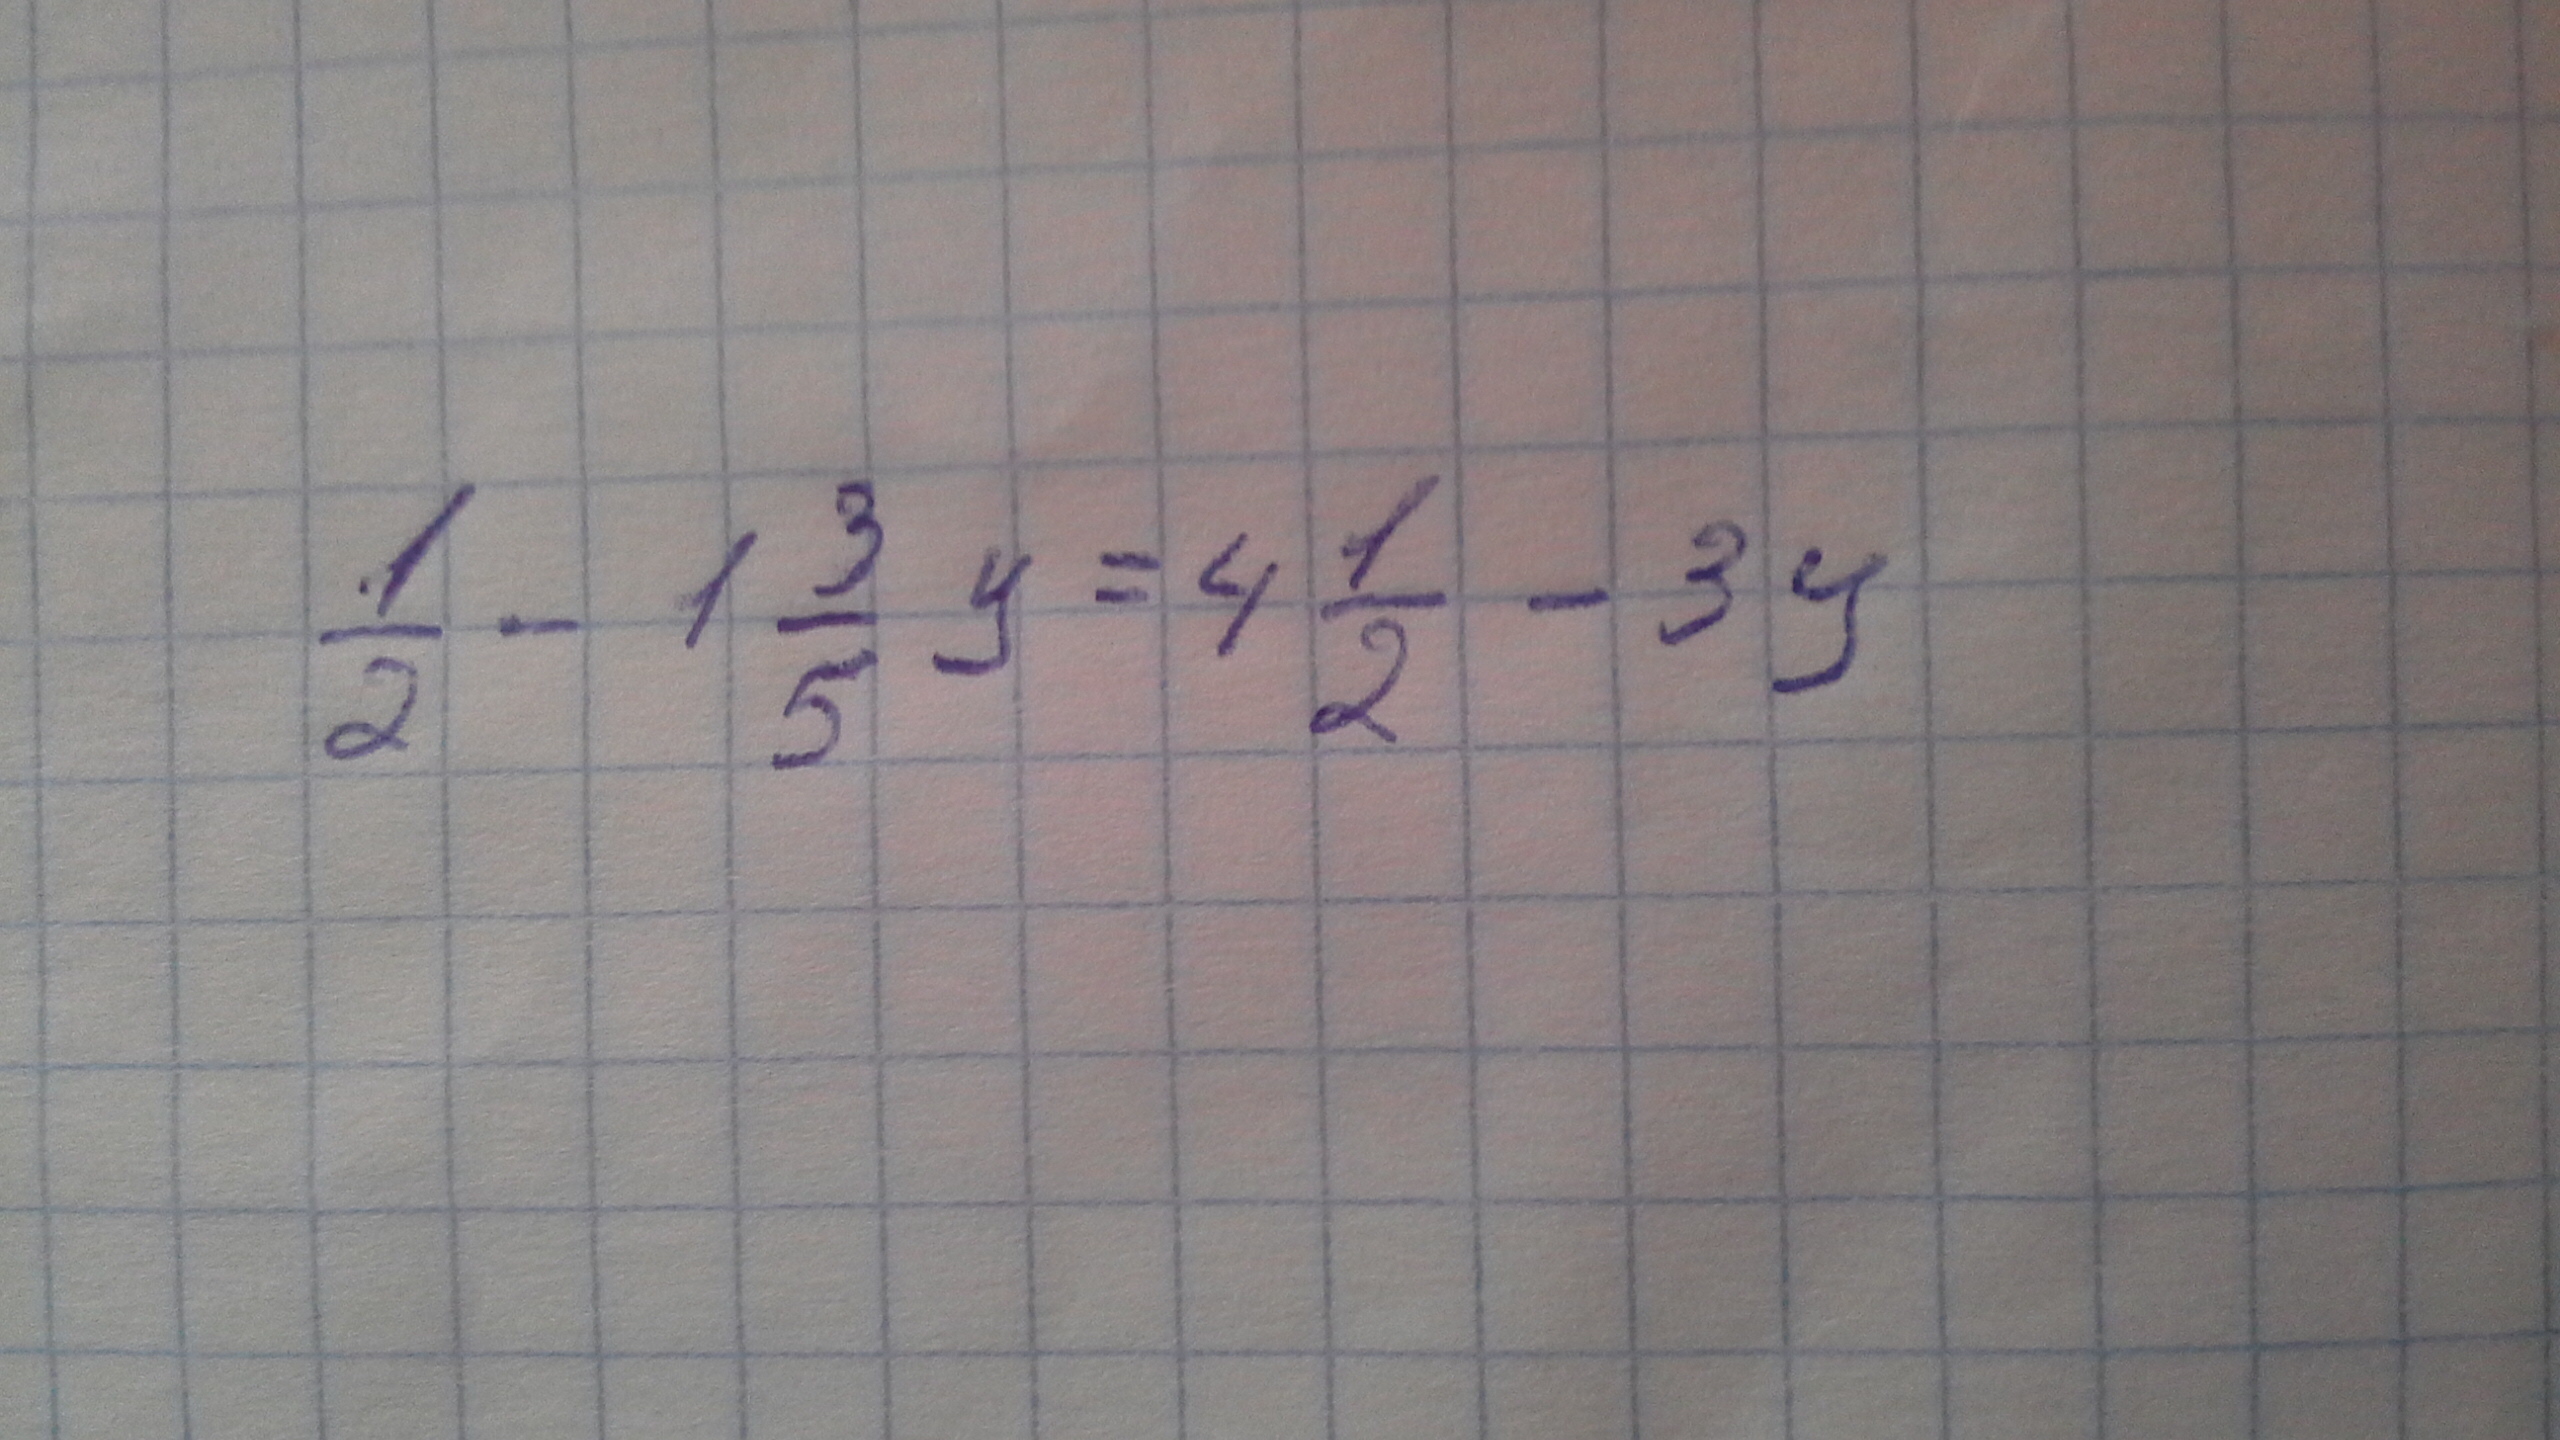 1/2 - 1 3/5 y = 4 1/2 - 3y